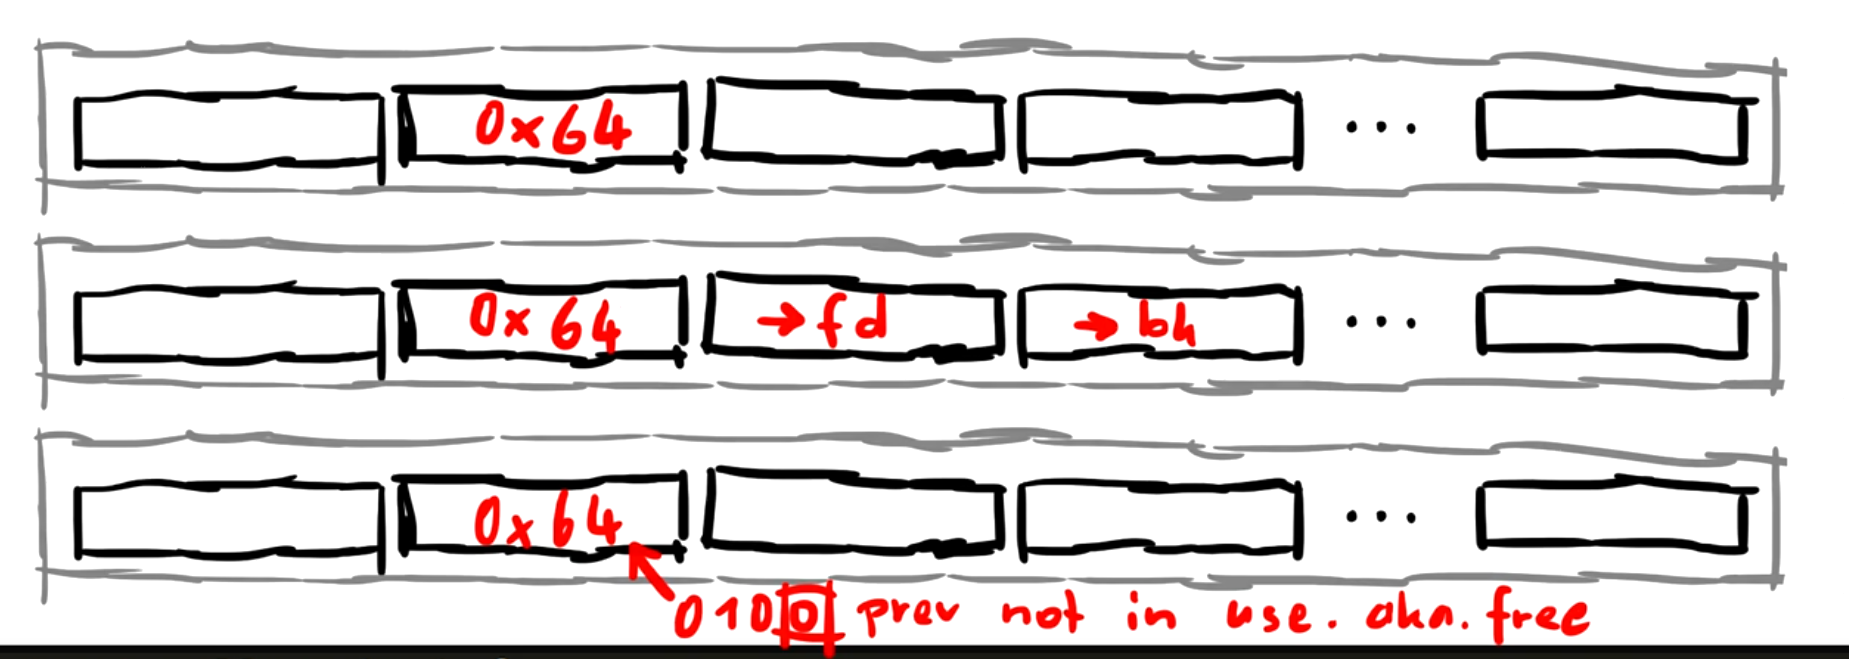 0x64
0x64 → fd → bk
0x64
0100 prev not in use. aka. free